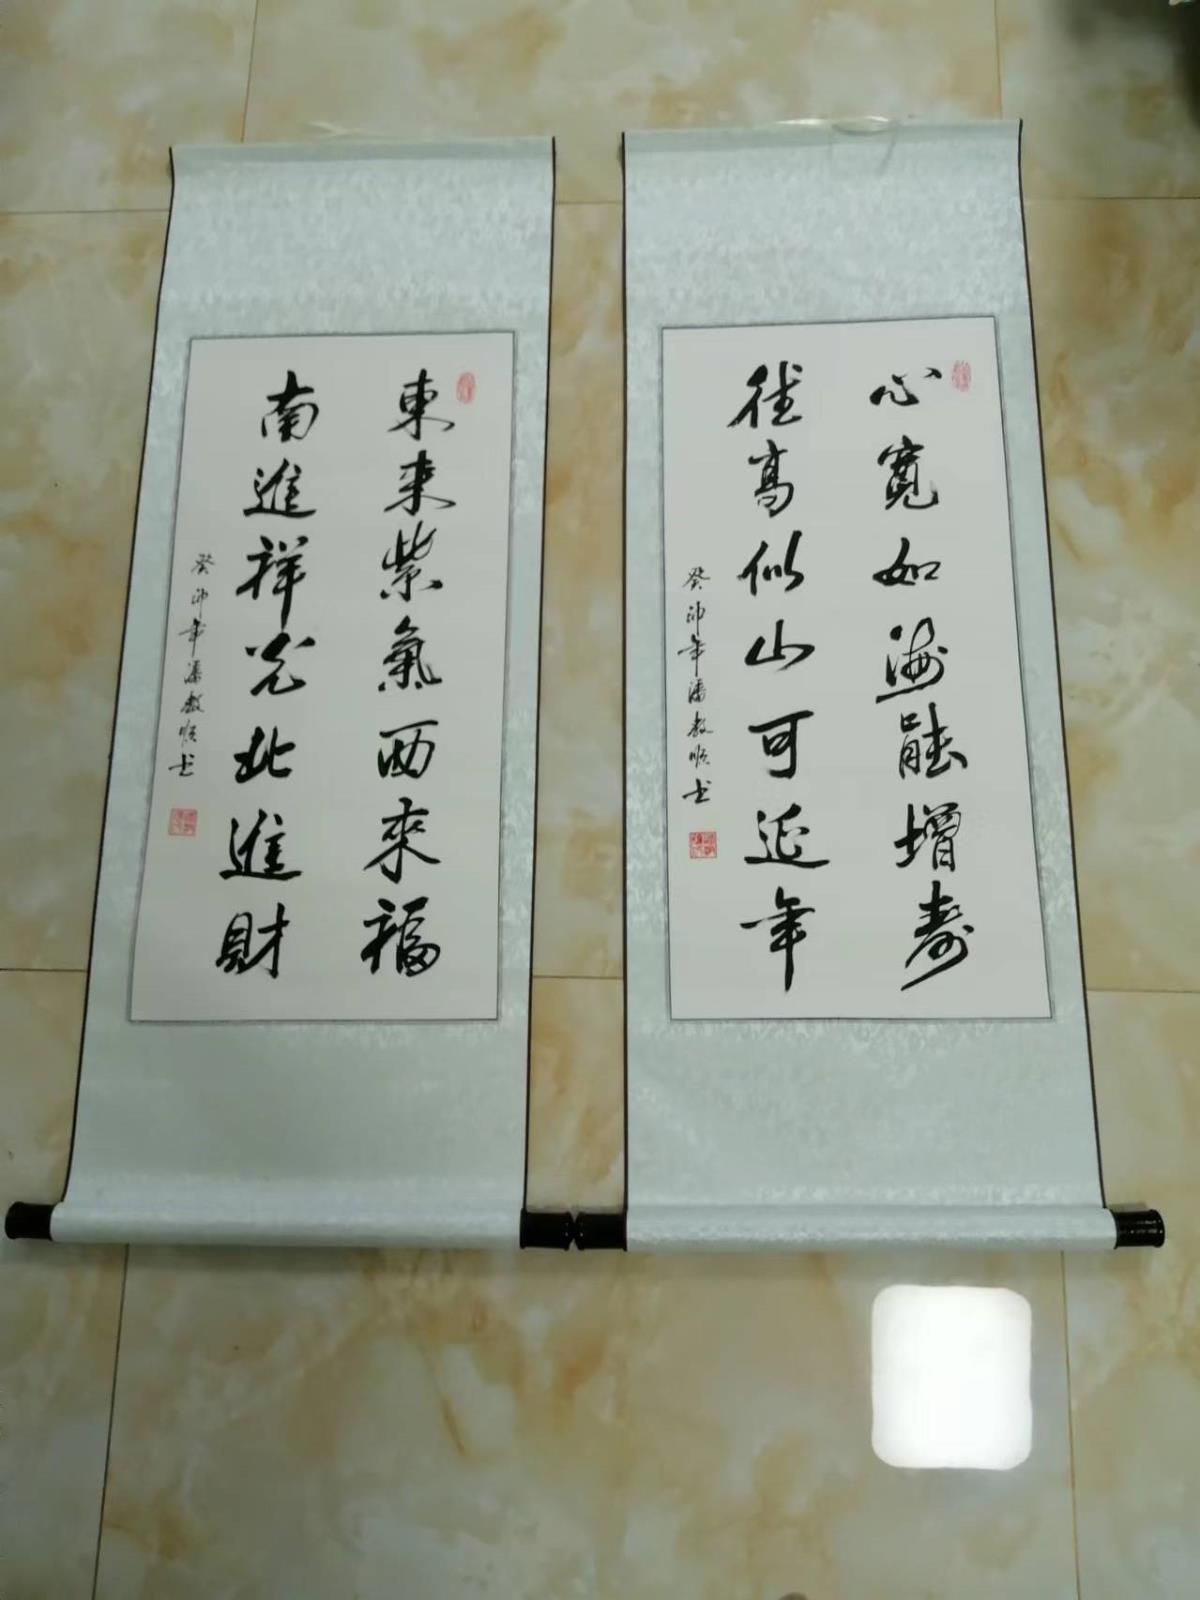 心寬如海能增壽
德高似山可延年
癸卯年潘教顺书
東来紫氣西來福
南進祥光北進財
癸卯年潘教顺书